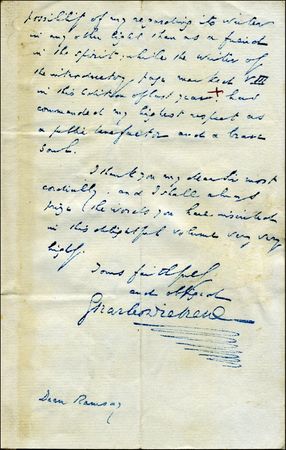 possibility of my regarding its writer
in any other light than as a friend
in the spirit; while the writer of
the introductory page marked VIII
in this edition of last year + had
commanded my highest respect as
a public benefactor and a brave
soul.
I thank you my dear Sir most
cordially, and I shall always
prize the words you have inscribed
in this delightful volume very very
highly.
Yours faithfully
and obliged
Charles Dickens
Dean Ramsay